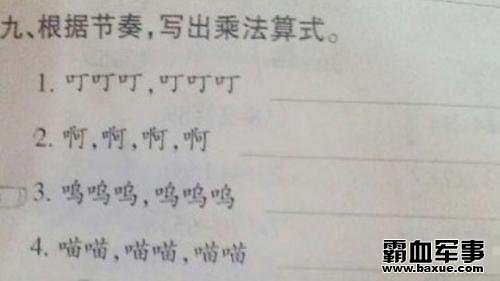 九、根据节奏,写出乘法算式。
1. 叮叮叮,叮叮叮
2. 啊,啊,啊,啊
3. 呜呜呜,呜呜呜
4. 喵喵,喵喵,喵喵
霸血军事
www.baxue.com